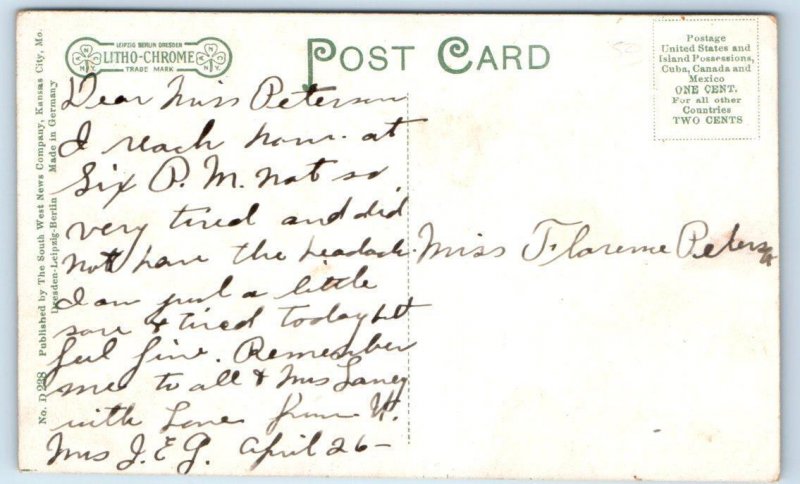 LEIPZIG BERLIN DRESDEN
LITHO-CHROME
TRADE MARK
POST CARD
Postage
United States and
Island Possessions,
Cuba, Canada and
Mexico
ONE CENT.
For all other
Countries
TWO CENTS
No. D 228 Published by The South West News Company, Kansas City, Mo.
Dresden-Leipzig-Berlin Made in Germany
Dear Miss Peterson
I reach home at
Six P. M. not so
very tired and did
not have the headach.
I am just a little
sore & tired today but
feel fine. Remember
me to all & Mrs Laney
with Love from
Mrs J. E. G. April 26-
Miss Florence Peterson